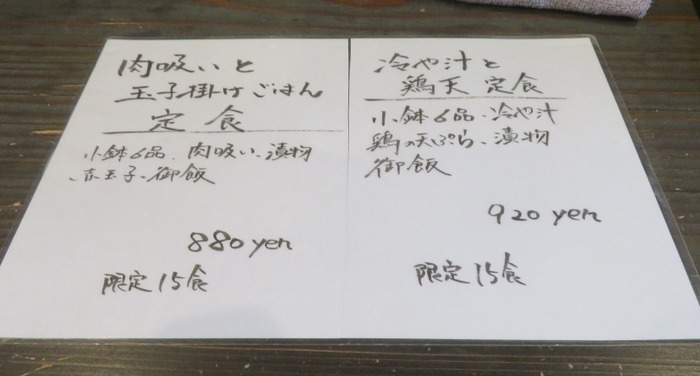 肉吸いと
玉子掛けごはん
定食
小鉢6品、肉吸い、漬物
、赤玉子、御飯
880yen
限定15食
冷や汁と
鶏天 定食
小鉢6品、冷や汁
鶏の天ぷら、漬物
御飯
920yen
限定15食